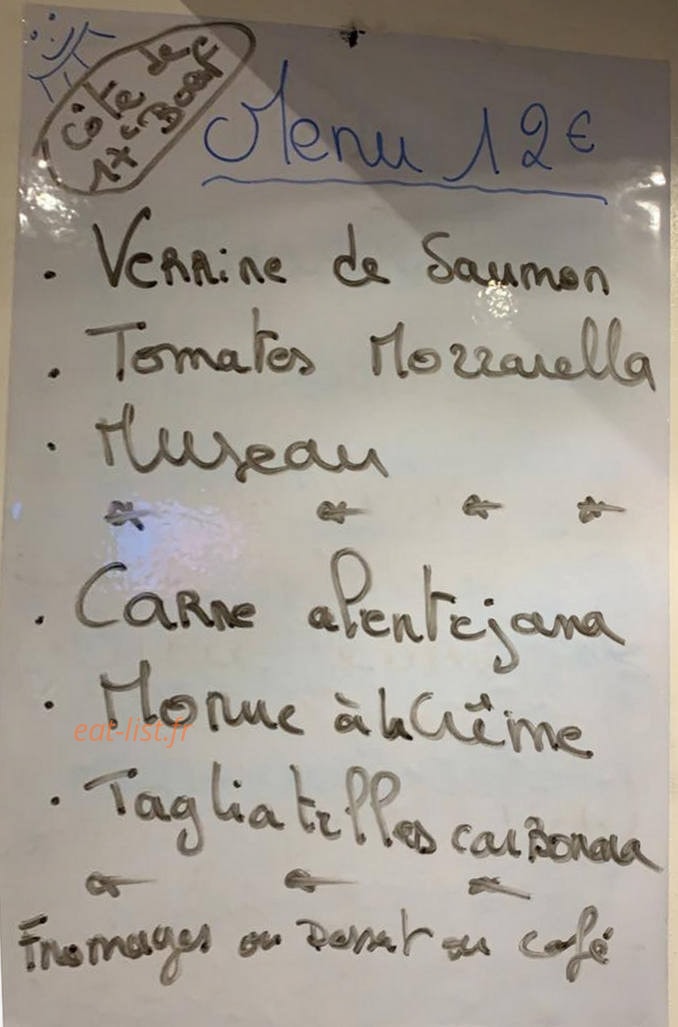 Côte de
Boeuf
17€
Menu 12€
. Verrine de Saumon
. Tomates Mozzarella
. Museau
. Carne alentejana
. Morue à la Crême
eat-list.fr
. Tagliatelles carbonara
Fromages ou Dessert ou café